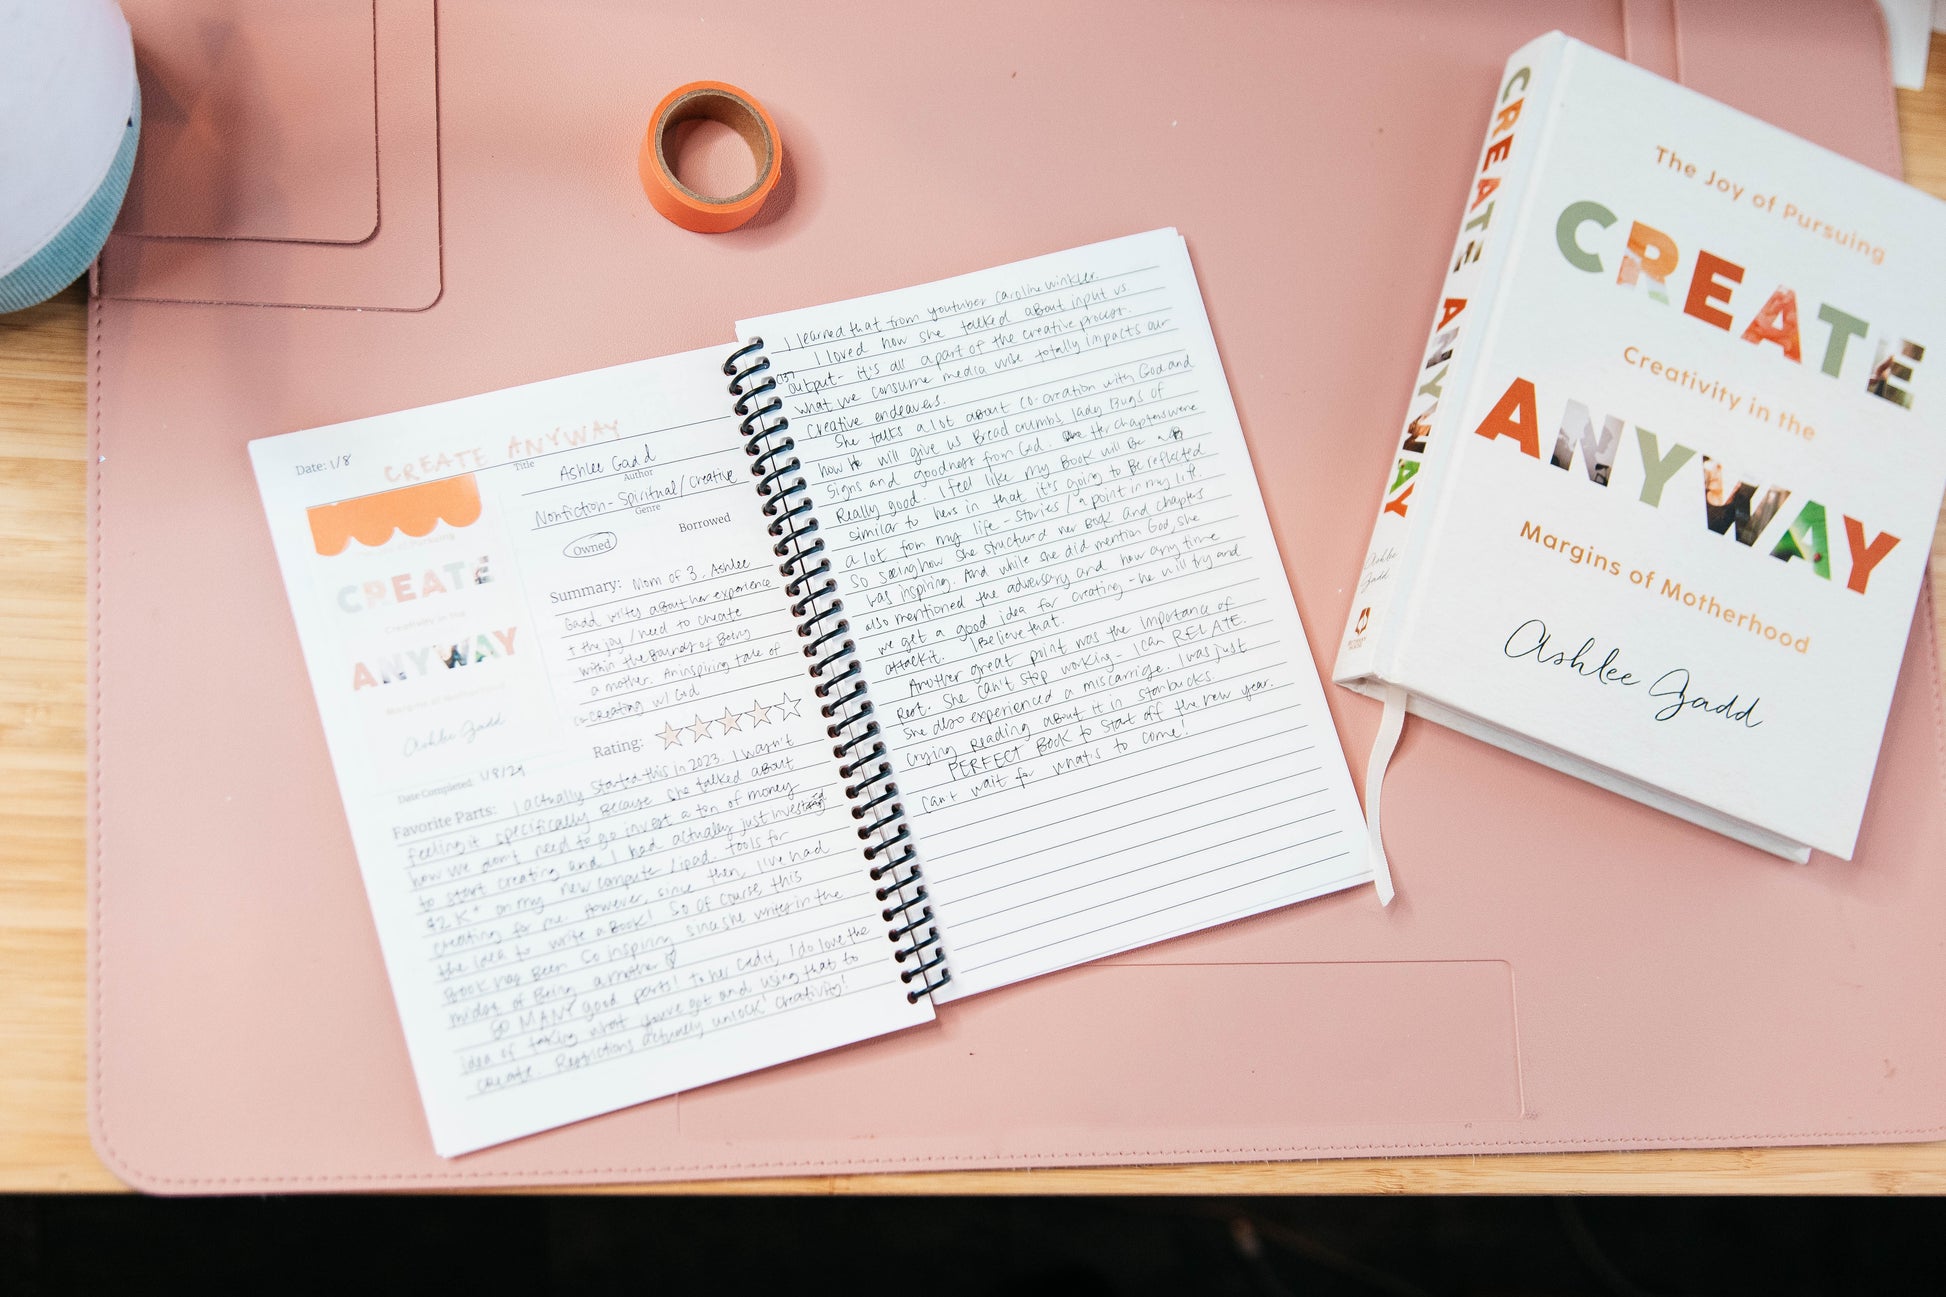 Date: 1/8
CREATE ANYWAY
Title
Ashlee Gadd
Author
Nonfiction - Spiritual / creative
Genre
Owned
Borrowed
of Pursuing
CREATE
Creativity in the
ANYWAY
Margins of Motherhood
Ashlee Gadd
Summary: Mom of 3, Ashlee
Gadd writes about her experience
+ the joy / need to create
within the bounds of being
a mother. An inspiring tale of
co-creating w/ God
Rating:
Date Completed: 1/8/24
Favorite Parts: I actually started this in 2023. I wasn't
feeling it specifically because she talked about
how we don't need to go invest a ton of money
to start creating and I had actually just invested
$2K+ on my new compute / ipad. Tools for
creating for me. However, since then, I've had
the idea to write a book! So of course, this
book has been so inspiring since she writes in the
midst of being a mother
So MANY good parts! To her credit, I do love the
idea of taking what you've got and using that to
create. Restrictions actually unlock creativity!
I learned that from youtuber Caroline Winkler.
I loved how she talked about input vs.
output - it's all a part of the creative process.
What we consume media wise totally impacts our
creative endeavors.
She talks a lot about co-creation with God and
how He will give us bread crumbs, lady bugs of
signs and goodness from God. Her chapters were
Really good. I feel like my book will be
similar to hers in that it's going to be reflected
a lot from my life - stories / a point in my life.
So seeing how she structured her book and chapters
was inspiring. And while she did mention God, she
also mentioned the adversary and how any time
we get a good idea for creating - he will try and
attack it. I believe that.
Another great point was the importance of
Rest. She can't stop working - I can RELATE.
She also experienced a miscarriage. I was just
crying reading about it in starbucks.
PERFECT book to start off the new year.
Can't wait for what's to come!
CREATE ANYWAY
Ashlee Gadd
The Joy of Pursuing
CREATE
Creativity in the
ANYWAY
Margins of Motherhood
Ashlee Gadd